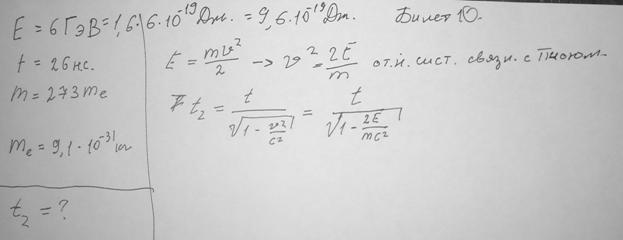 E = 6 ГэВ = 1,6 · 6 · 10⁻¹⁹ Дж. = 9,6 · 10⁻¹⁹ Дж. Билет 10.
t = 26 нс.
m = 273 mₑ
mₑ = 9,1 · 10⁻³¹ кг
t₂ = ?
E = mυ²/2 → υ² = 2E/m отн. сист. связн. с Пионом.
t₂ = t/√(1 - υ²/c²) = t/√(1 - 2E/mc²)